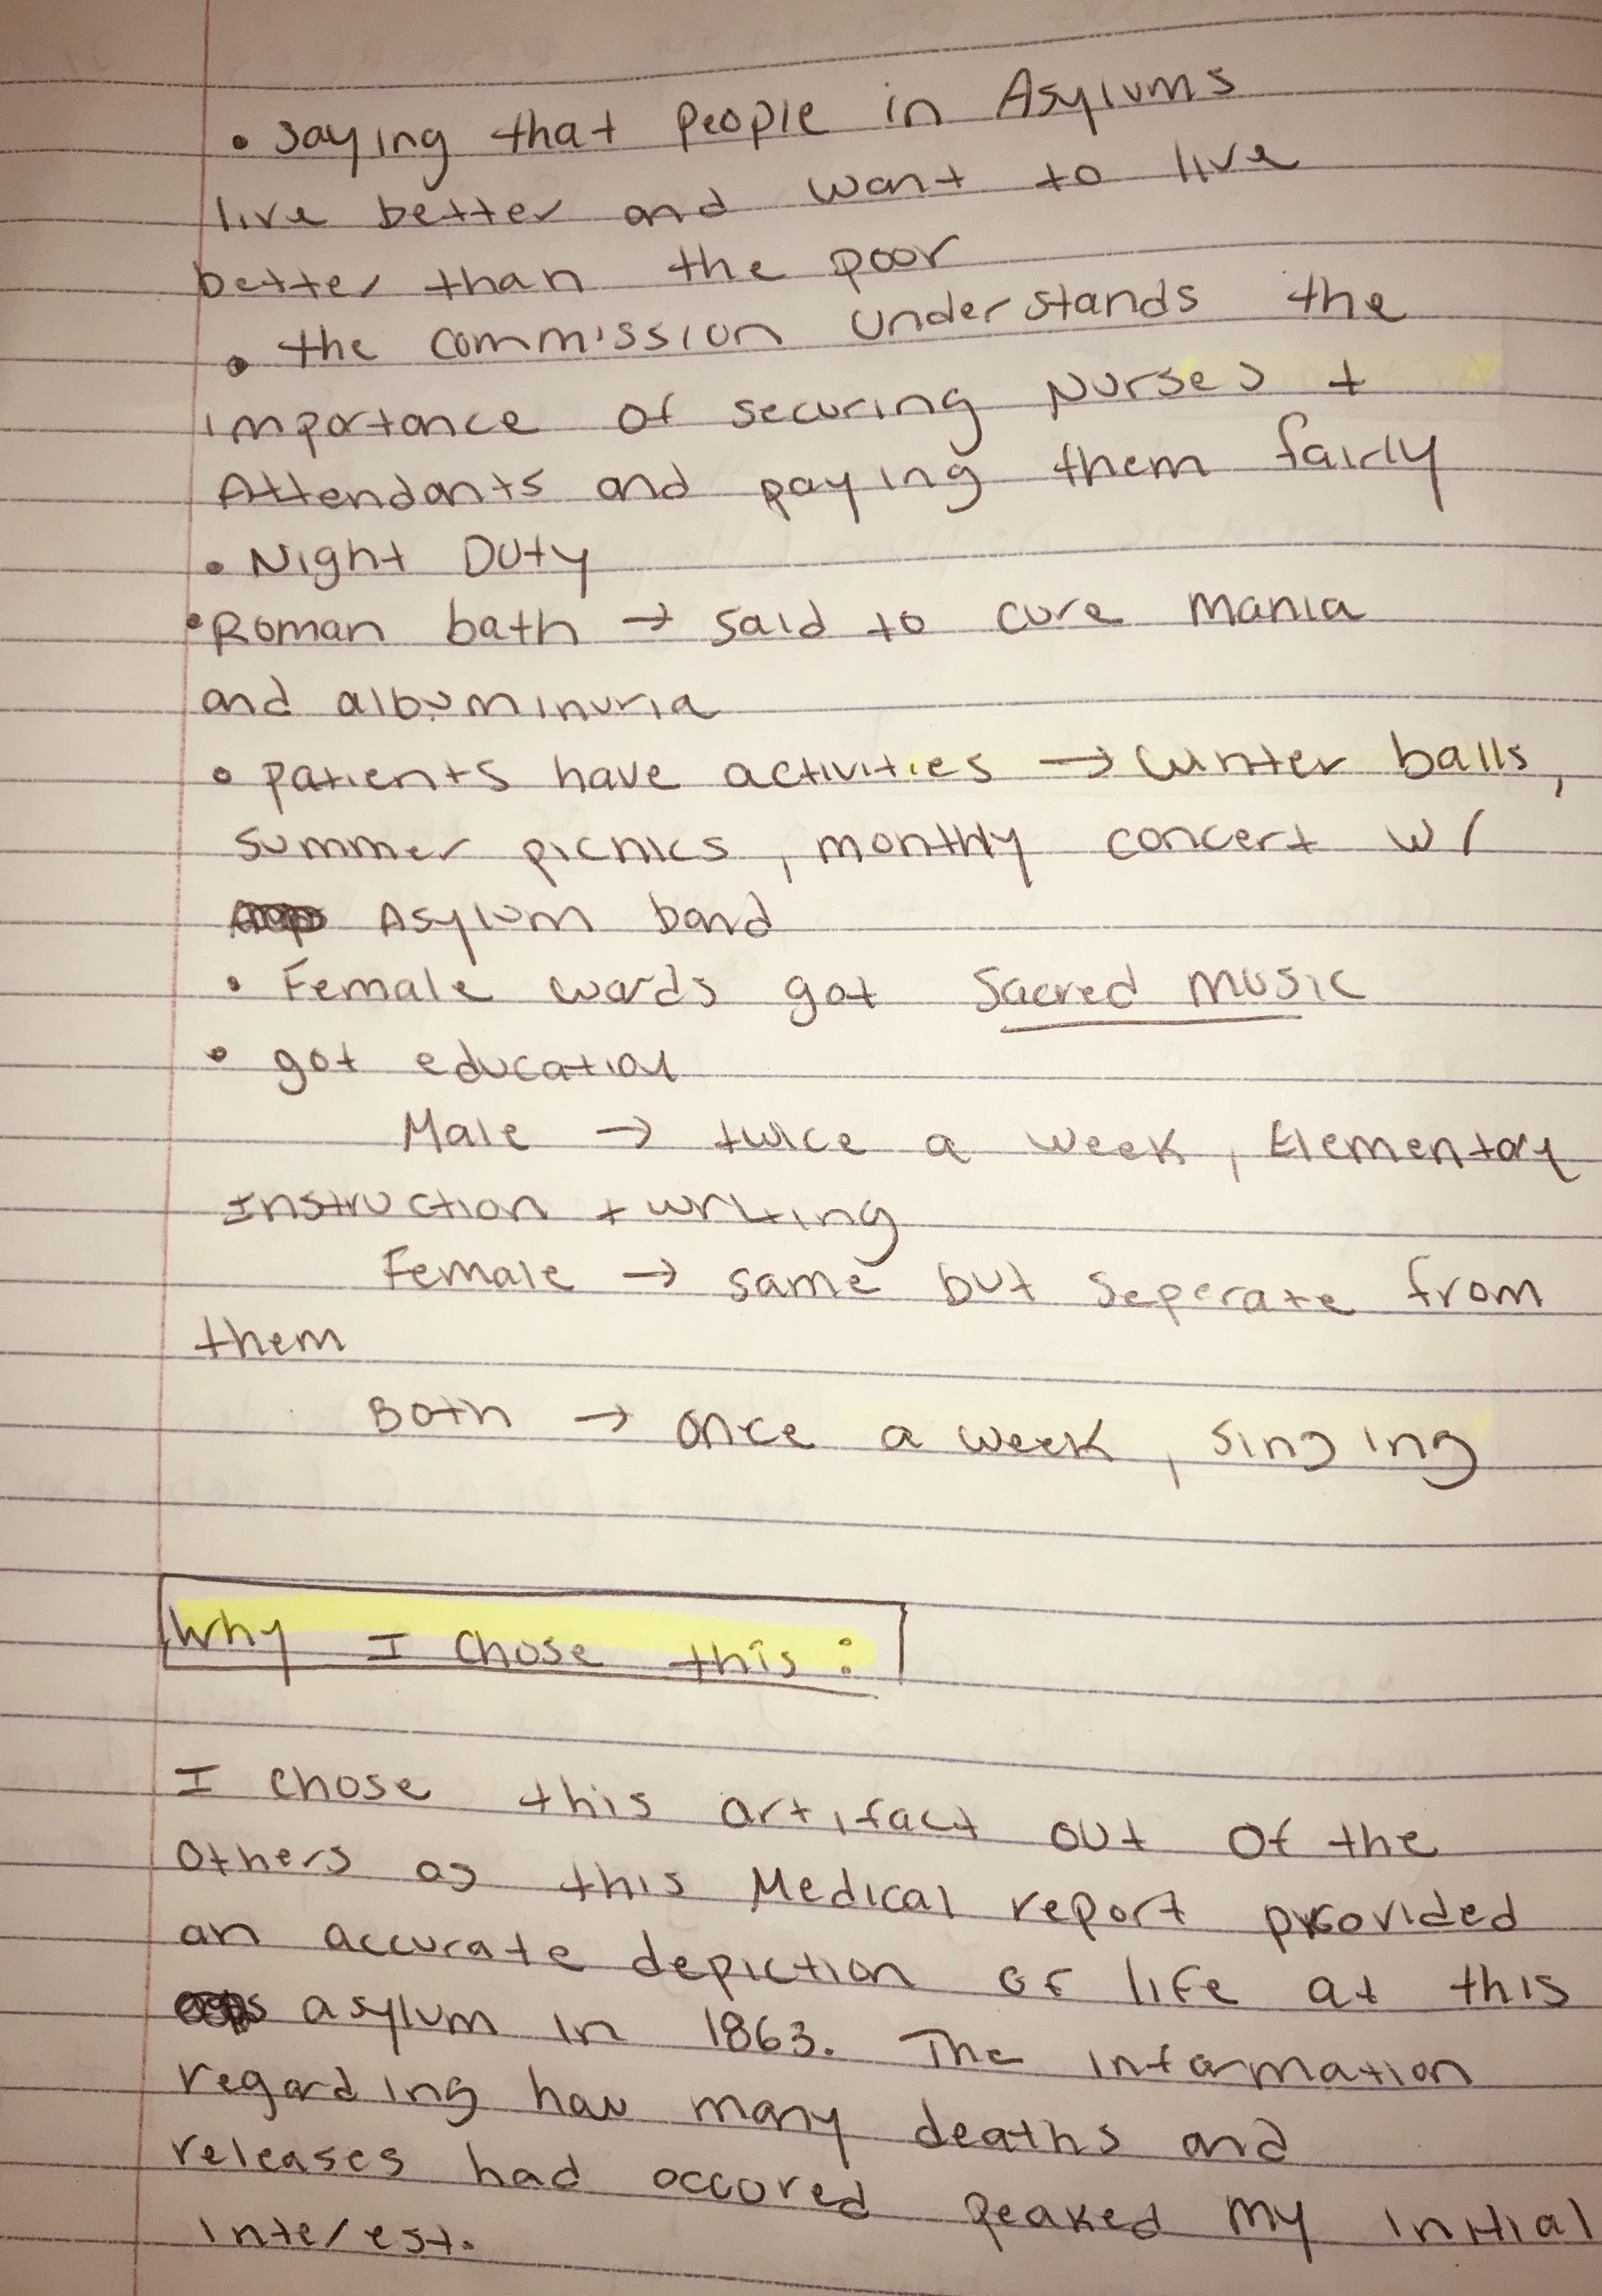 • Saying that People in Asylums
live better and want to live
better than the poor
• the commission understands the
importance of securing Nurses +
Attendants and paying them fairly
• Night Duty
• Roman bath → said to cure mania
and albuminuria
• patients have activities → Winter balls,
summer picnics, monthly concert w/
Asylum band
• Female wards got Sacred music
• got education
Male → twice a week, Elementary
Instruction + writing
Female → same but seperate from
them
Both → once a week, singing
Why I chose this:
I chose this artifact out of the
others as this Medical report provided
an accurate depiction of life at this
asylum in 1863. The information
regarding how many deaths and
releases had occored peaked my initial
interest.